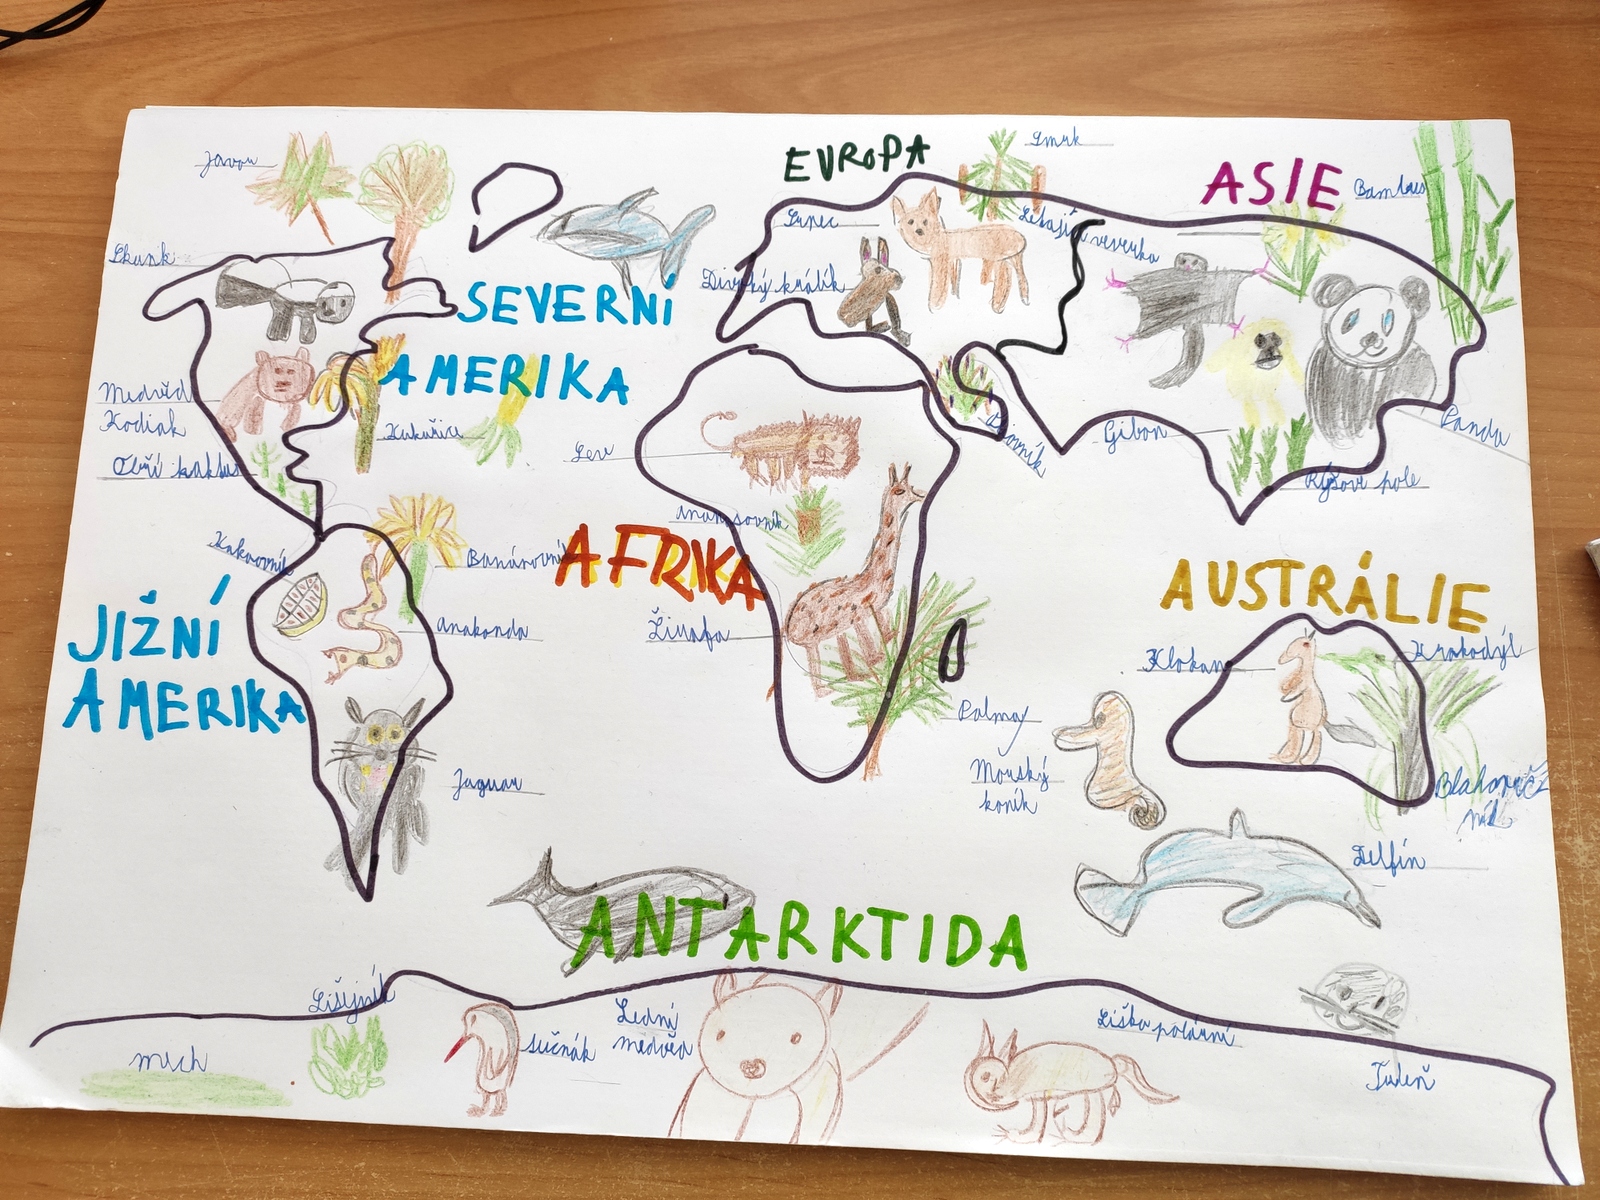 Javor
EVROPA
Smrk
ASIE
Bambus
Skunk
Srnec
Létající veverka
Divoký králík
SEVERNÍ
AMERIKA
Medvěd
Kodiak
Kukuřice
Obří kaktus
Lev
Gibon
Panda
Rýžové pole
Ananasovník
AFRIKA
Kakaovník
Banánovník
Anakonda
Žirafa
JIŽNÍ
AMERIKA
Jaguar
AUSTRÁLIE
Klokan
Krokodýl
Palmy
Mořský
koník
Blahovič
ník
Delfín
ANTARKTIDA
Lišejník
mech
tučnák
Lední
medvěd
Liška polární
Tuleň